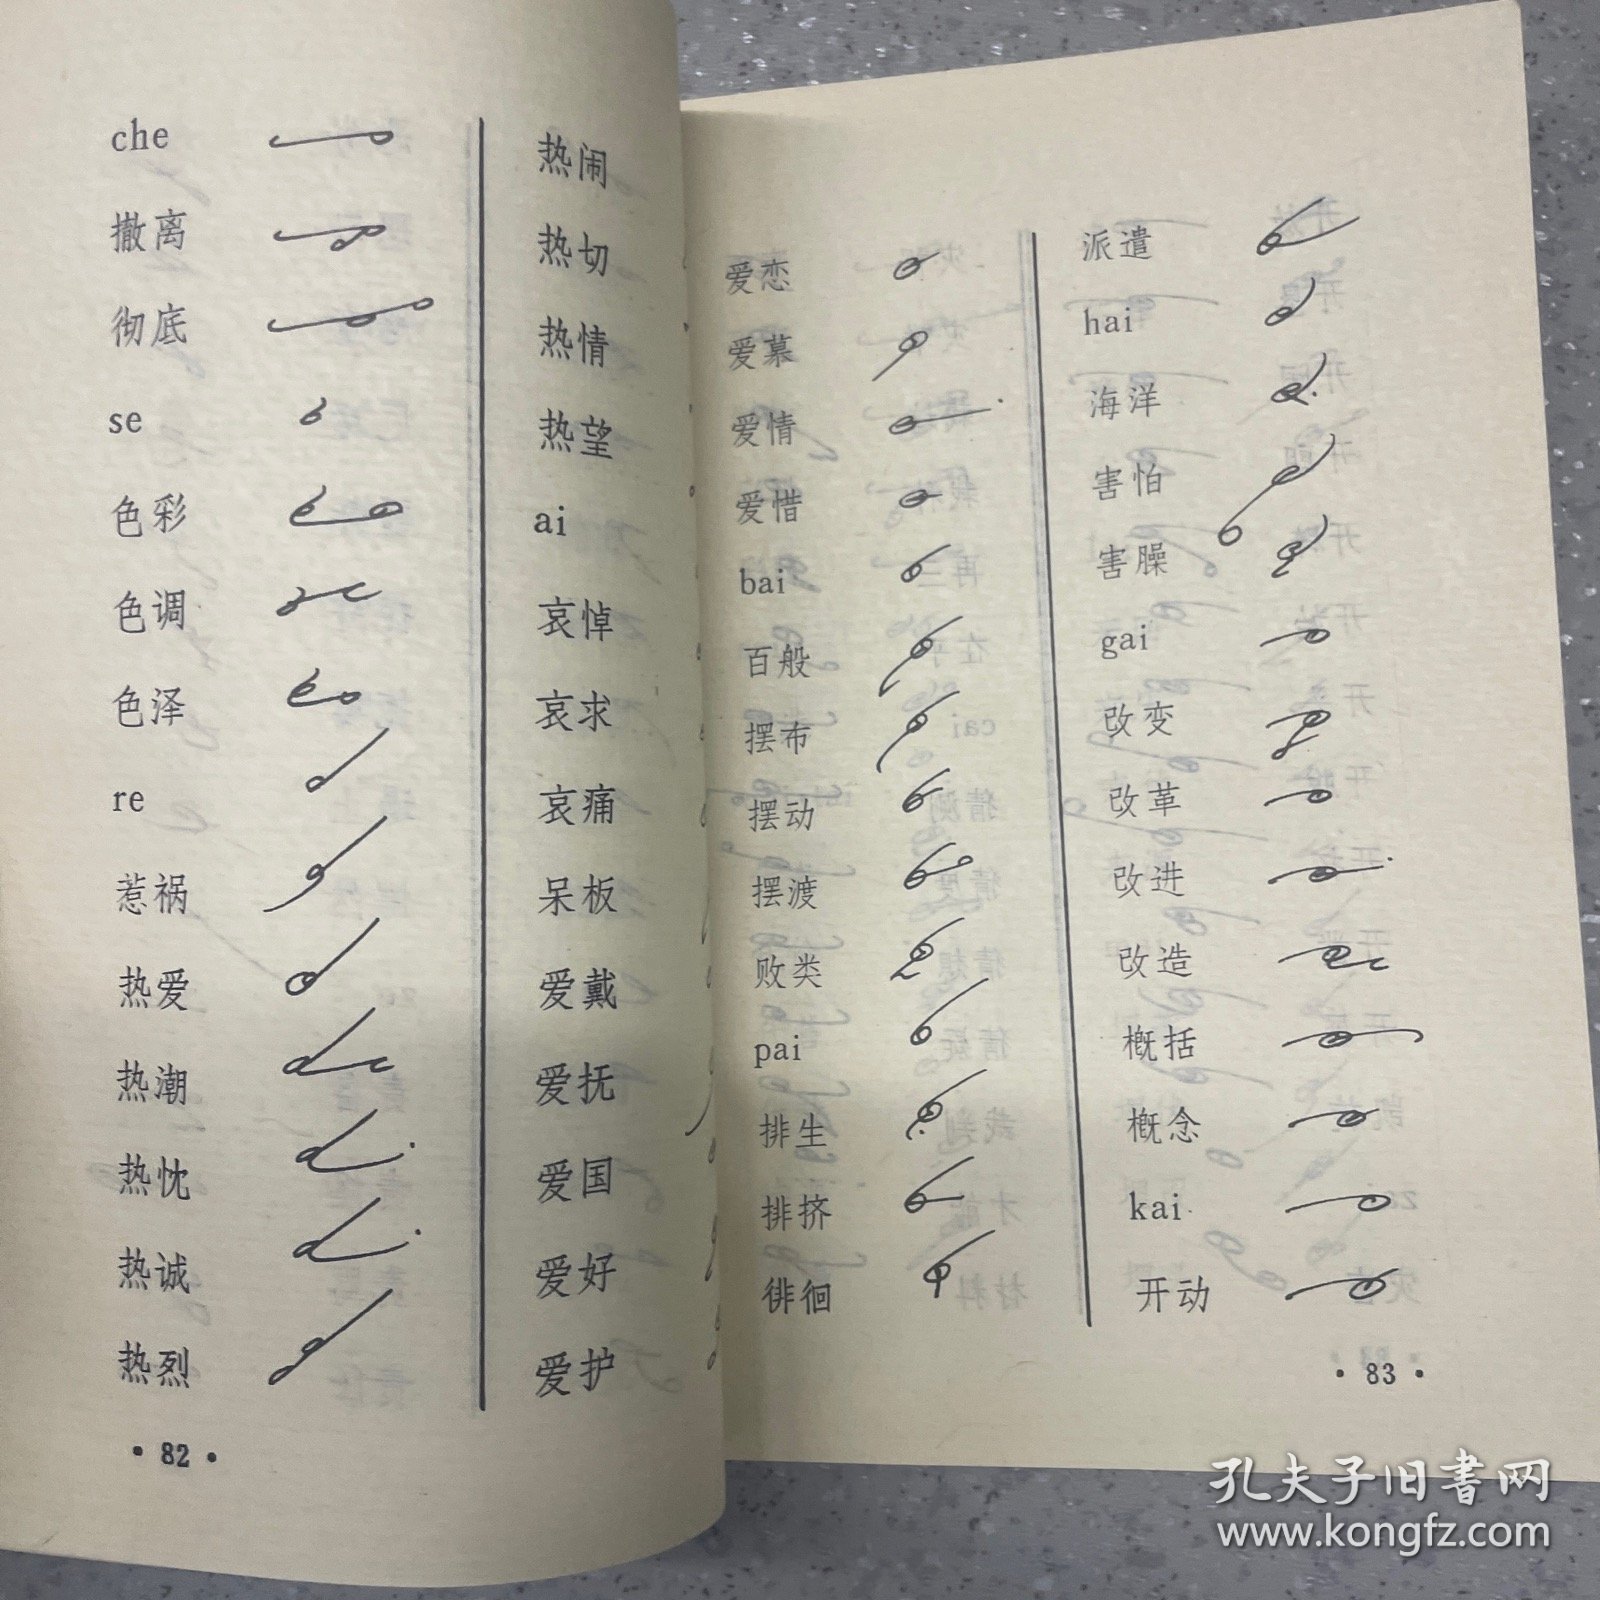 che
撤离
彻底
se
色彩
色调
色泽
re
惹祸
热爱
热潮
热忱
热诚
热烈
热闹
热切
热情
热望
ai
哀悼
哀求
哀痛
呆板
爱戴
爱抚
爱国
爱好
爱护
• 82 •
爱恋
爱慕
爱情
爱惜
bai
百般
摆布
摆动
摆渡
败类
pai
排生
排挤
徘徊
派遣
hai
海洋
害怕
害臊
gai
改变
改革
改进
改造
概括
概念
kai
开动
• 83 •
孔夫子旧书网
www.kongfz.com